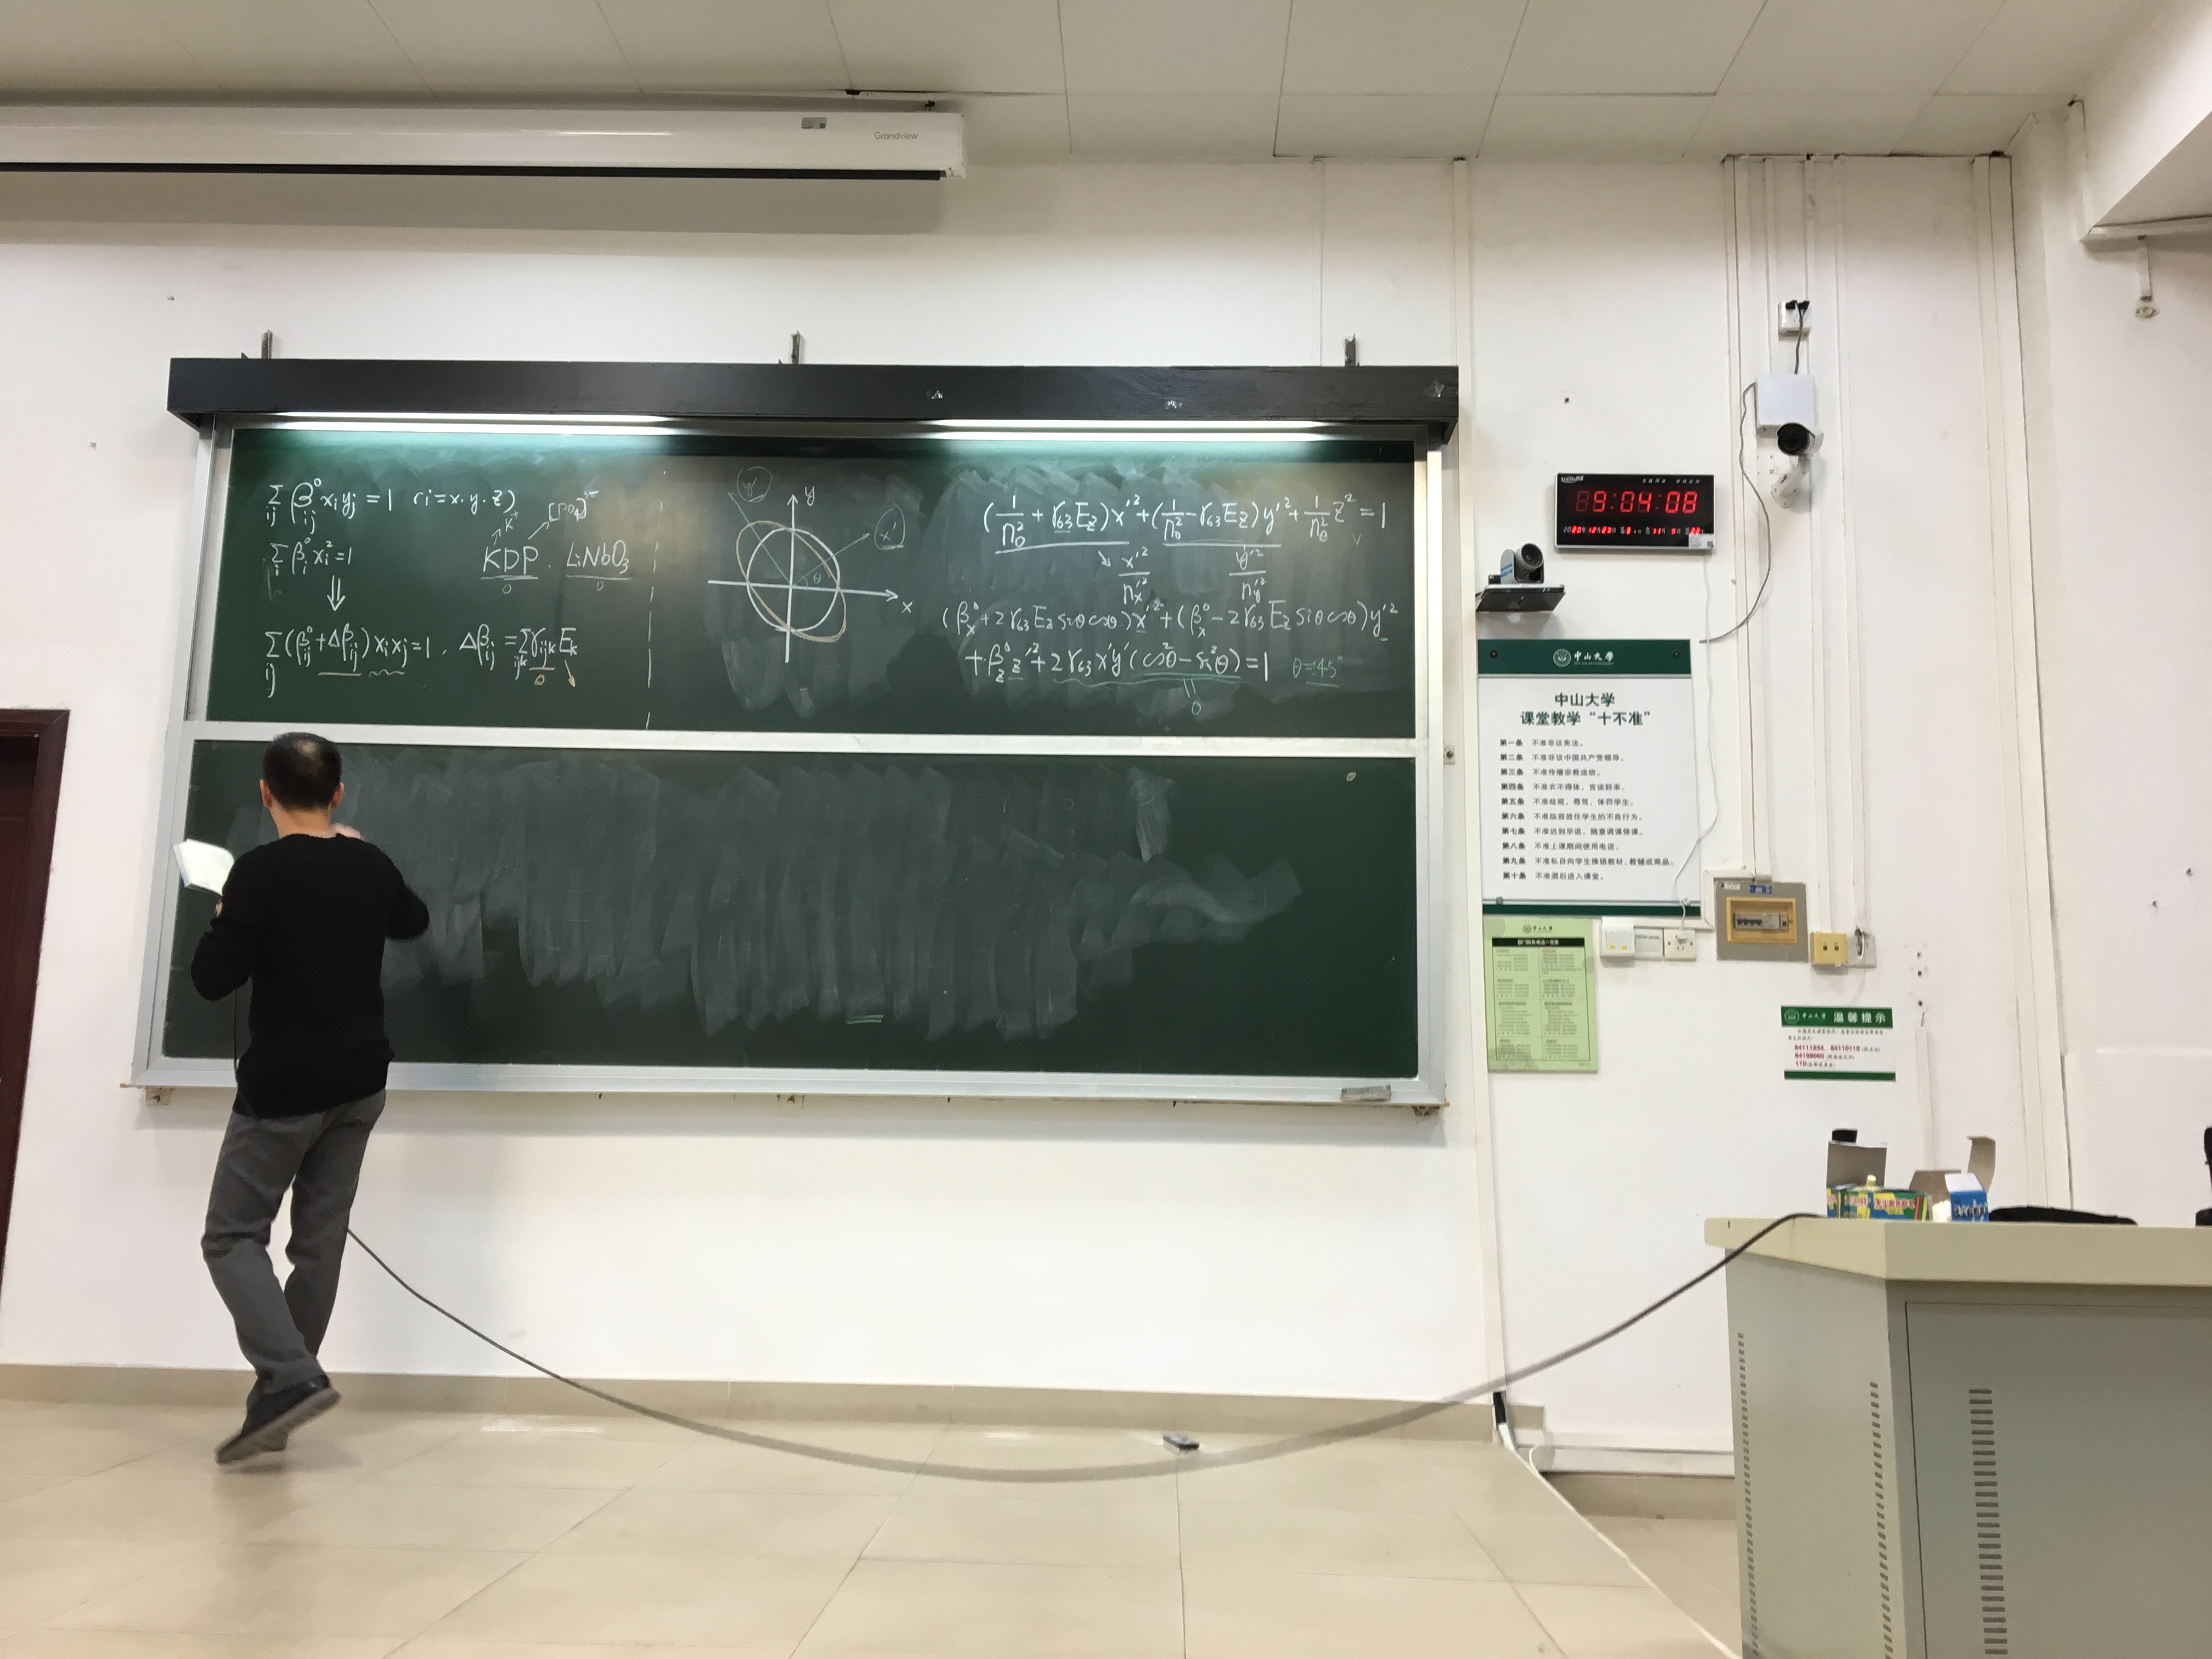 Grandview
∑ij βij⁰ xi yj = 1 (i=x.y.z)
K⁺ [PO4]³⁻
∑i βi⁰ xi² = 1
KDP . LiNbO3
⇓
∑ij (βij⁰ + Δβij) xi xj = 1 . Δβij = ∑ijk γijk Ek
y'
y
x'
θ
x
(1/n0² + γ63 Ez) x'² + (1/n0² − γ63 Ez) y'² + 1/ne² z² = 1
x'²/nx'² y'²/ny'²
(βx⁰ + 2γ63 Ez sinθ cosθ) x'² + (βx⁰ − 2γ63 Ez sinθ cosθ) y'²
+ βz⁰ z'² + 2γ63 x'y' (cos²θ − sin²θ) = 1 θ=45°
0
9:04:08
中山大学
中山大学
课堂教学“十不准”
第一条 不准非议宪法。
第二条 不准非议中国共产党领导。
第三条 不准传播宗教迷信。
第四条 不准衣不得体,言谈轻率。
第五条 不准歧视、辱骂、体罚学生。
第六条 不准纵容放任学生的不良行为。
第七条 不准迟到早退,随意调课停课。
第八条 不准上课期间使用电话。
第九条 不准私自向学生推销教材、教辅或商品。
第十条 不准酒后进入课堂。
中山大学
中山大学 温馨提示
84111234、84110110
110